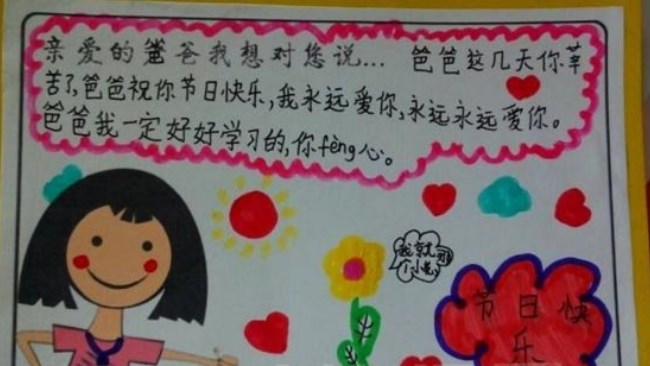 亲爱的爸爸我想对您说... 爸爸这几天你辛
苦了,爸爸祝你节日快乐,我永远爱你,永远永远爱你。
爸爸我一定好好学习的,你fèng心。
我就
个小
节日快
乐